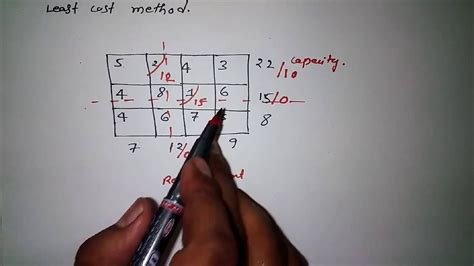 Least cost method.
5 2 4 3 22/10 capacity.
12
4 8 1 6 15/0
15
4 6 7 8
7 12/0 9